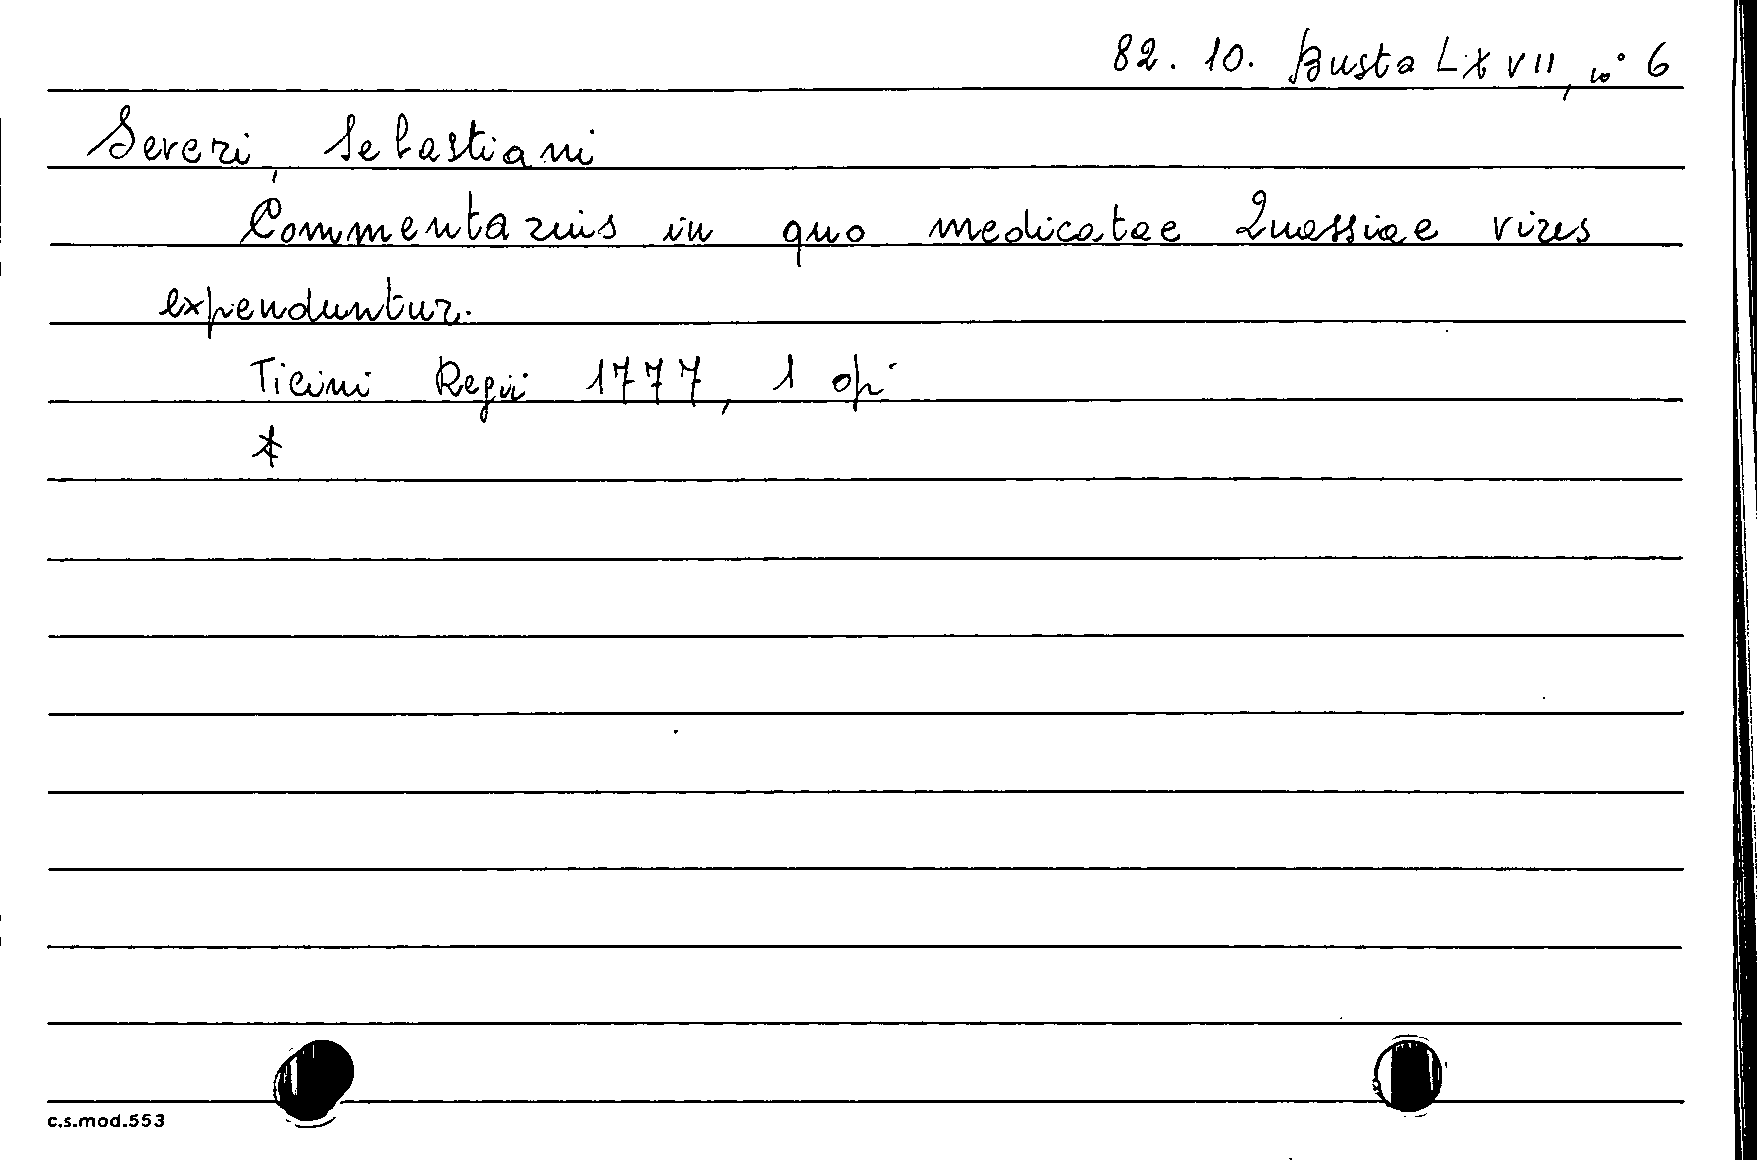 82. 10. Busta LXVII, n° 6
Severi, Sebastiani
Commentarius in quo medicatae Quassiae vires
expenduntur.
Ticini Regii 1777, 1 op
c.s.mod.553